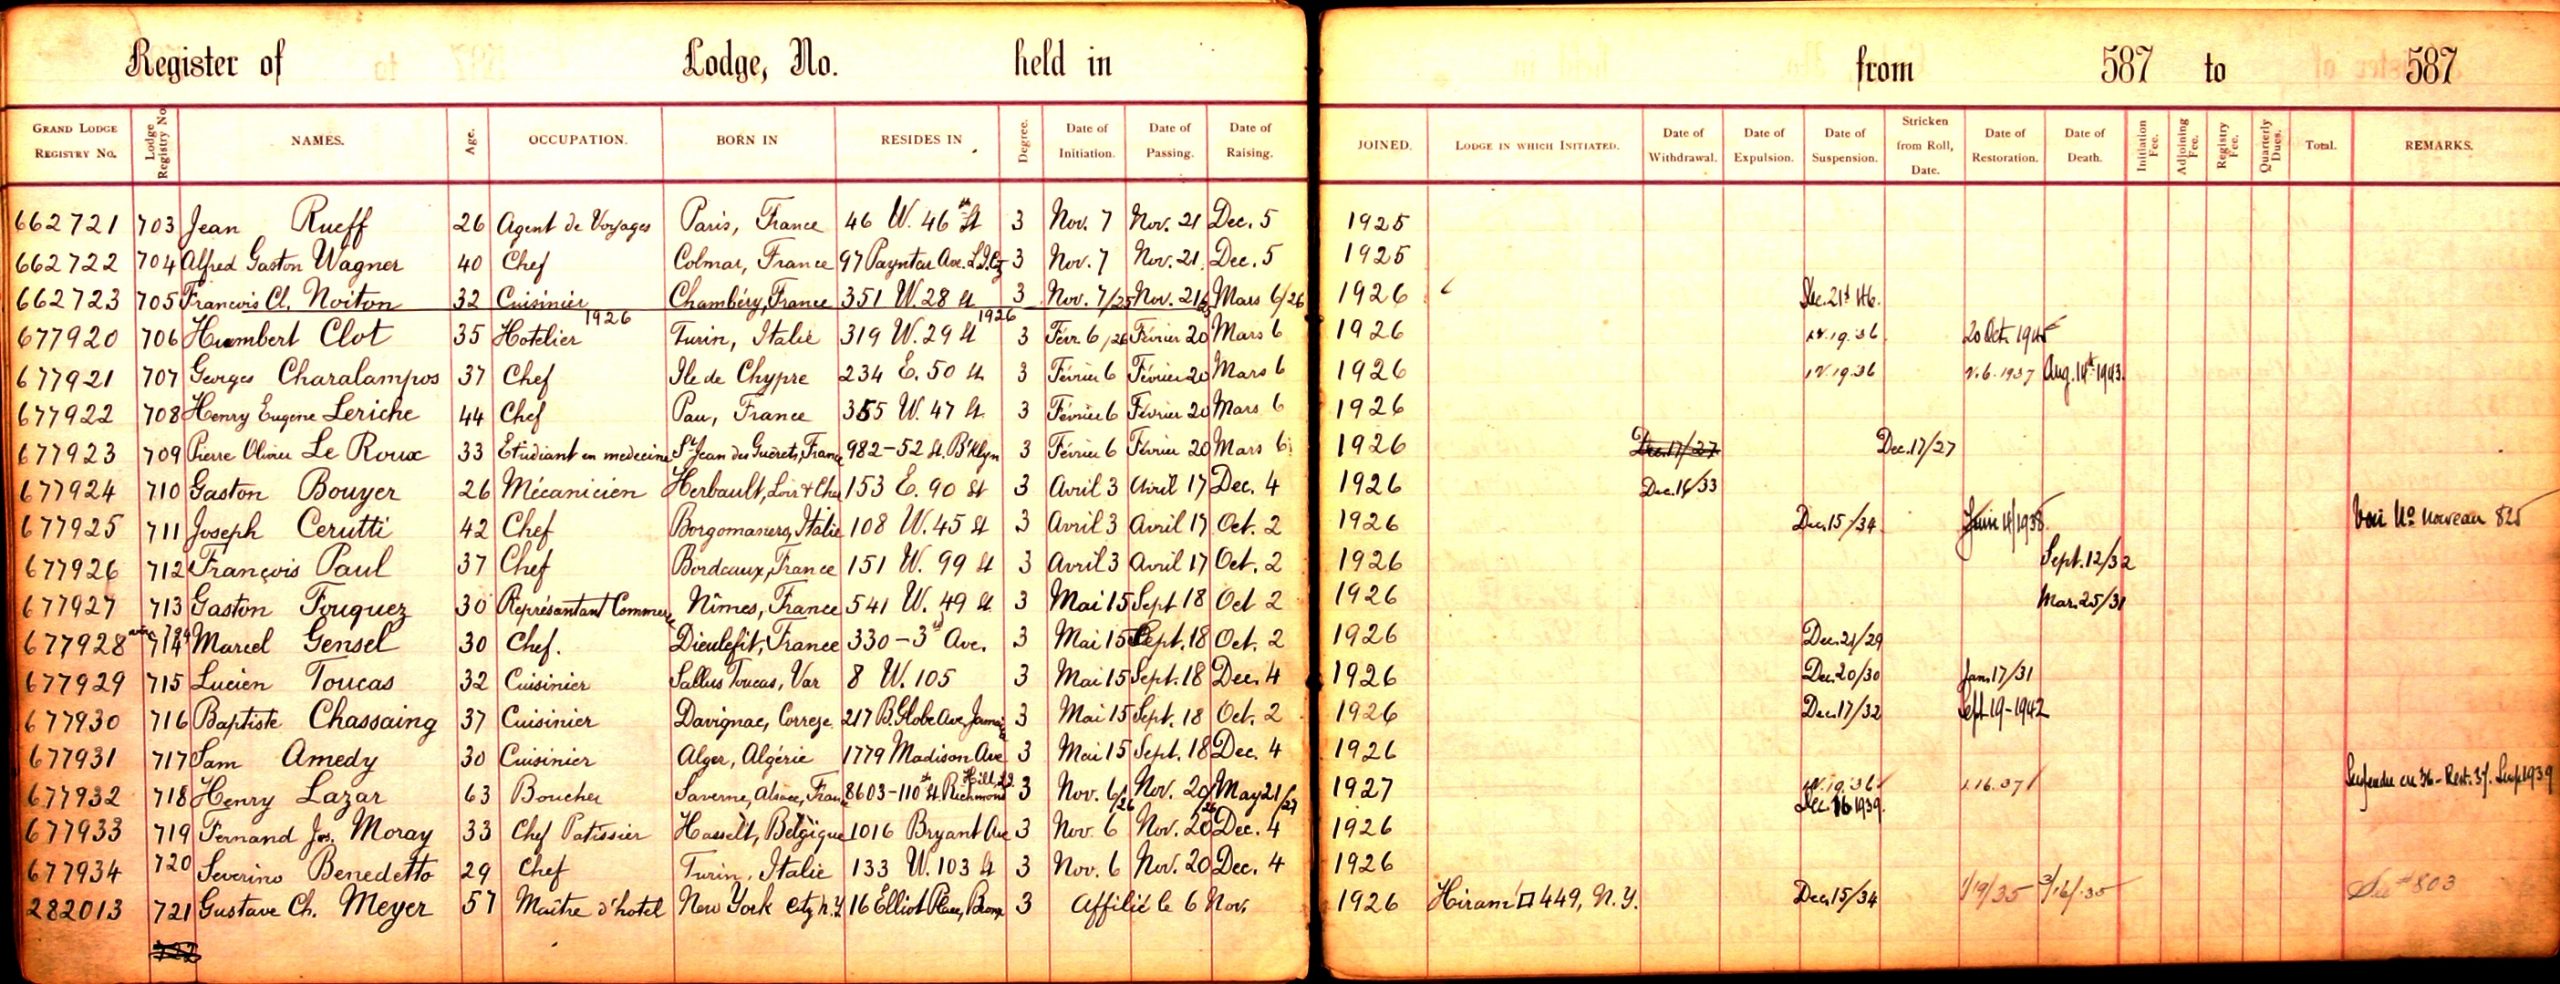 Register of Lodge, No. held in from 587 to 587
GRAND LODGE REGISTRY NO. Lodge Registry No. NAMES. Age. OCCUPATION. BORN IN RESIDES IN Degree. Date of Initiation. Date of Passing. Date of Raising. JOINED. LODGE IN WHICH INITIATED. Date of Withdrawal. Date of Expulsion. Date of Suspension. Stricken from Roll, Date. Date of Restoration. Date of Death. Initiation Fee. Adjoining Fee. Registry Fee. Quarterly Dues. Total. REMARKS.
662721 703 Jean Rueff 26 Agent de Voyages Paris, France 46 W. 46th St 3 Nov. 7 Nov. 21 Dec. 5 1925
662722 704 Alfred Gaston Wagner 40 Chef Colmar, France 97 Payntar Ave. L.I.Cy 3 Nov. 7 Nov. 21 Dec. 5 1925
662723 705 Francois Cl. Noiton 32 Cuisinier Chambéry, France 351 W. 28 st 3 Nov. 7/25 Nov. 21/25 Mars 6/26 1926 Dec. 21st 46.
1926 1926
677920 706 Humbert Clot 35 Hotelier Turin, Italie 319 W. 29 st 3 Févr. 6/26 Février 20 Mars 6 1926 19.36 20 Oct. 1945
677921 707 Georges Charalampos 37 Chef Ile de Chypre 234 E. 50 st. 3 Février 6 Février 20 Mars 6 1926 19.36 6.1937 Aug. 14th 1943.
677922 708 Henry Eugene Leriche 44 Chef Pau, France 355 W. 47 st. 3 Février 6 Février 20 Mars 6 1926
677923 709 Pierre Olivier Le Roux 33 Etudiant en medecine St Jean des Guérets, France 982-52 st. B'klyn 3 Février 6 Février 20 Mars 6 1926 Dec. 17/27 Dec. 17/27
677924 710 Gaston Bouyer 26 Mécanicien Herbault, Loir & Cher 153 E. 90 st 3 Avril 3 Avril 17 Dec. 4 1926 Dec. 16/33
677925 711 Joseph Cerutti 42 Chef Borgomanero, Italie 108 W. 45 st 3 Avril 3 Avril 17 Oct. 2 1926 Dec. 15/34 Juin 4/1938 Voir No nouveau 825
677926 712 François Paul 37 Chef Bordeaux, France 151 W. 99 st 3 Avril 3 Avril 17 Oct. 2 1926 Sept. 12/32
677927 713 Gaston Fouquez 30 Représantant Commerce Nîmes, France 541 W. 49 st. 3 Mai 15 Sept 18 Oct 2 1926 Mar. 25/31
677928 714 Marcel Gensel 30 Chef. Dieulefit, France 330-3rd Ave. 3 Mai 15 Sept. 18 Oct. 2 1926 Dec. 21/29
677929 715 Lucien Toucas 32 Cuisinier Sallus Toucas, Var 8 W. 105 3 Mai 15 Sept. 18 Dec. 4 1926 Dec. 20/30 Jan. 17/31
677930 716 Baptiste Chassaing 37 Cuisinier Davignac, Correze 217 B. Globe Ave, Jamaica 3 Mai 15 Sept. 18 Oct. 2 1926 Dec. 17/32 Sept 19-1942
677931 717 Sam Amedy 30 Cuisinier Alger, Algérie 1779 Madison Ave 3 Mai 15 Sept. 18 Dec. 4 1926
677932 718 Henry Lazar 63 Boucher Saverne, Alsace, France 8603-110th st. Richmond Hill, L.I. 3 Nov. 6/26 Nov. 20/26 May 21/27 1927 19.36 16.37 Suspendu en 36 - Rest. 37. Susp 1939
Dec. 16 1939.
677933 719 Fernand Jos. Moray 33 Chef Patissier Hasselt, Belgique 1016 Bryant Ave 3 Nov. 6 Nov. 20 Dec. 4 1926
677934 720 Severino Benedetto 29 Chef Turin, Italie 133 W. 103 st 3 Nov. 6 Nov. 20 Dec. 4 1926
282013 721 Gustave Ch. Meyer 57 Maître d'hotel New York City N.Y. 16 Elliot Place, Bronx 3 Affilié le 6 Nov. 1926 Hiram 449, N.Y. Dec. 15/34 1/19/35 3/16/35 See # 803
722